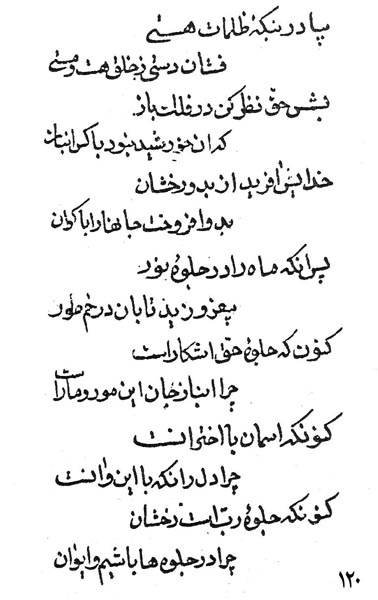 بیا در بنگه ظلمات هستی
فشان دستی ز خلق هست و مستی
بشمس حق نظر کن در فلک باز
که آن خورشید نبود با کس انباز
خدایش آفرید از بدو رخشان
بدو افروخت جانها را با کوان
پس آنکه ماه را در جلوهٔ نور
بیفروزید تابان در خم طور
کنون که جلوهٔ حق آشکار است
چرا انباز جان این مور و مار است
کنونکه آسمان با اختران است
چرا دل را نکه با این و آنست
کنونکه جلوهٔ رب است رخشان
چرا در جلوه ها باشیم و ایوان
۱۲۰